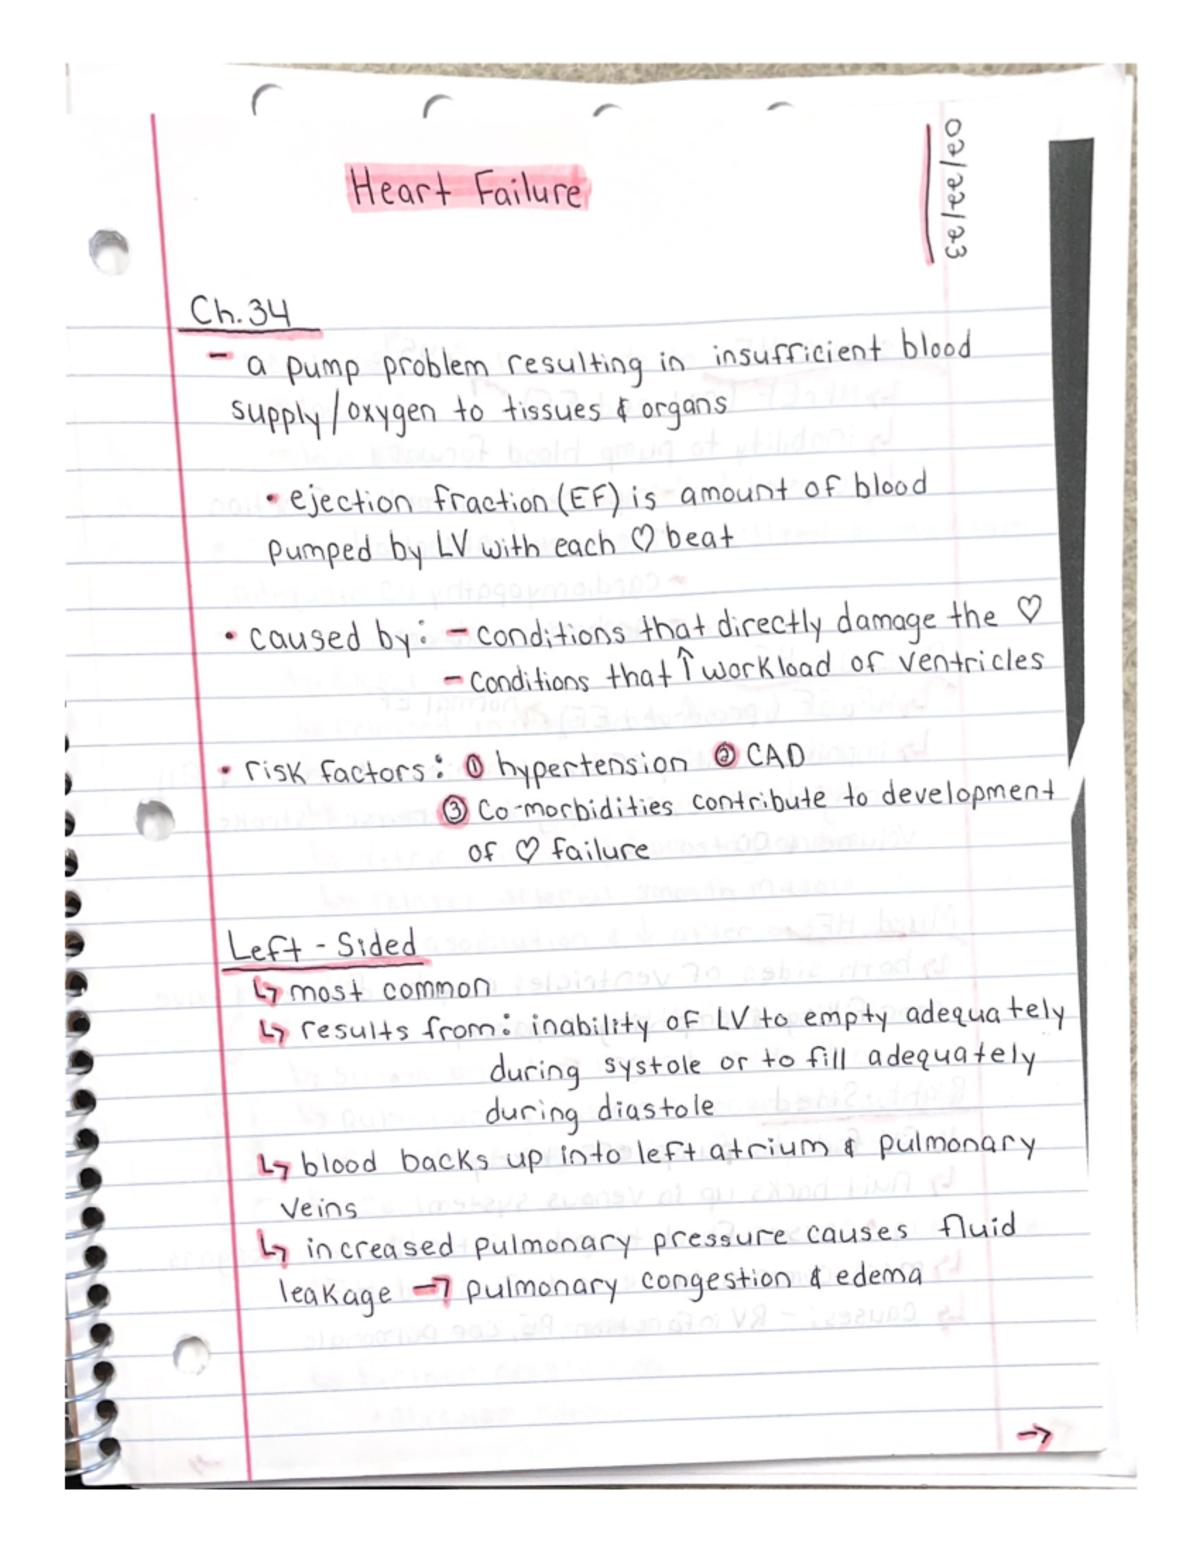 02/22/23
Heart Failure
Ch. 34
- a pump problem resulting in insufficient blood
supply/oxygen to tissues & organs
• ejection fraction (EF) is amount of blood
pumped by LV with each ♡ beat
• caused by: - conditions that directly damage the ♡
- conditions that ↑ workload of ventricles
• risk factors: ① hypertension ② CAD
③ Co-morbidities contribute to development
of ♡ failure
Left-Sided
↳ most common
↳ results from: inability of LV to empty adequately
during systole or to fill adequately
during diastole
↳ blood backs up into left atrium & pulmonary
veins
↳ increased pulmonary pressure causes fluid
leakage → pulmonary congestion & edema
→